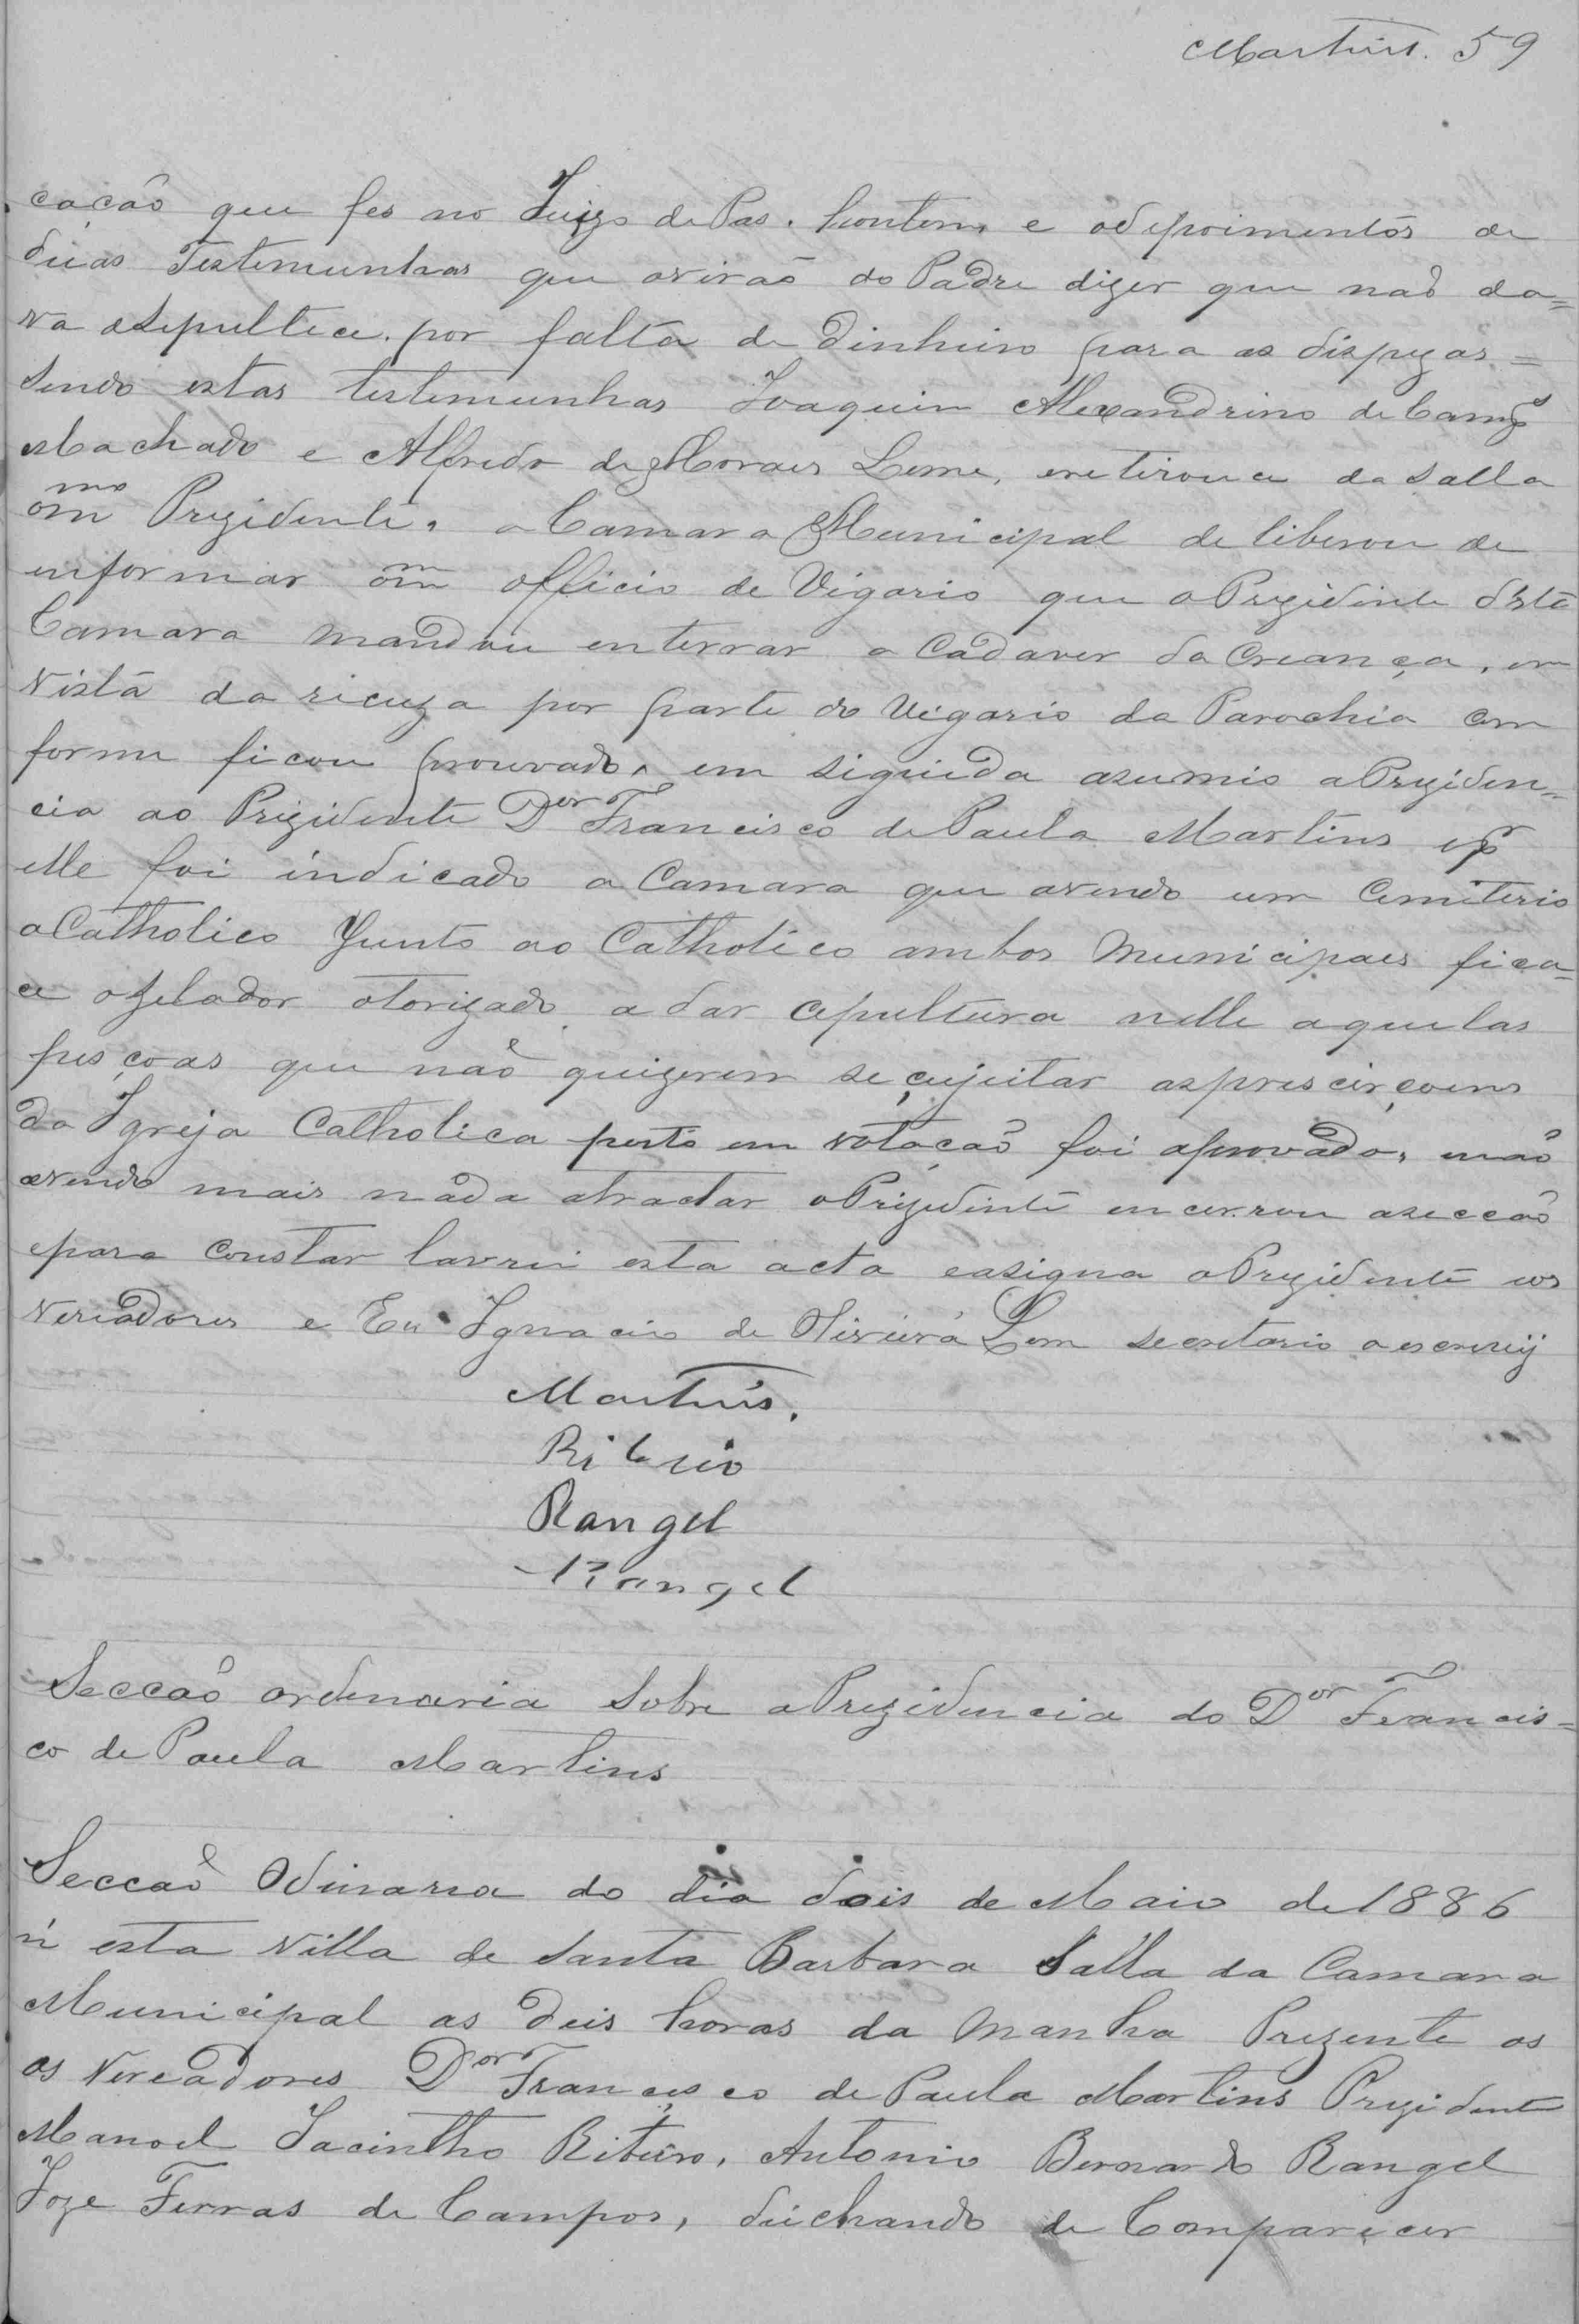 Martins. 59
cação que fes no Juizo de Pas. hontem, e odepoimentos de
duas Testemunhas que ovirão do Padre dizer que não da=
va asepultura por falta de Dinheiro para as dispezas =
sendo estas testemunhas Joaquim Alexandrino de Camps
Machado e Alfredo de Moraes Leme, eretirouce da salla
omo Prezidente, a Camara Municipal de liberou de
enformar om officio de Vigario que o Prezidente desta
Camara mandou enterrar o Cadaver da Creança, em
vista da sicuza por parte do Vigario da Parochia com
forme ficou prouvado, em siguida asumio a Preziden=
cia ao Prizidente Dor Francisco de Paula Martins e pr
elle foi indicado a Camara que avendo um Cemiterio
aCatholico Junto ao Catholico ambos Municipaes fica=
ce ozelador otorizado a dar cepultura nelle aquelas
pesçoas que não quizerem se çujeitar asprescirçoens
da Igreja Catholica posto em votação foi aprovado, enão
avendo mais náda atractar o Prizidente encerrou asecção
epara Constar lavrei esta acta easigna o Prezidente eos
Vereadores e Eu Ignacio de Oliveira Lem secretario o escrevij
Martins.
Ribeiro
Rangel
Rangel
Secção ordenaria Sobre a Prezidencia do Dor Francis=
co de Paula Martins
Secção Odinaria do dia dois de Maio de 1886
n'esta Villa de Santa Barbara Salla da Camara
Municipal as Deis horas da manha Prezente os
os Vereadores Dor Francisco de Paula Martins Prezidente
Manoel Jacintho Ribeiro, Antonio Bernardo Rangel
Joze Ferras de Campos, deichando de Comparecer